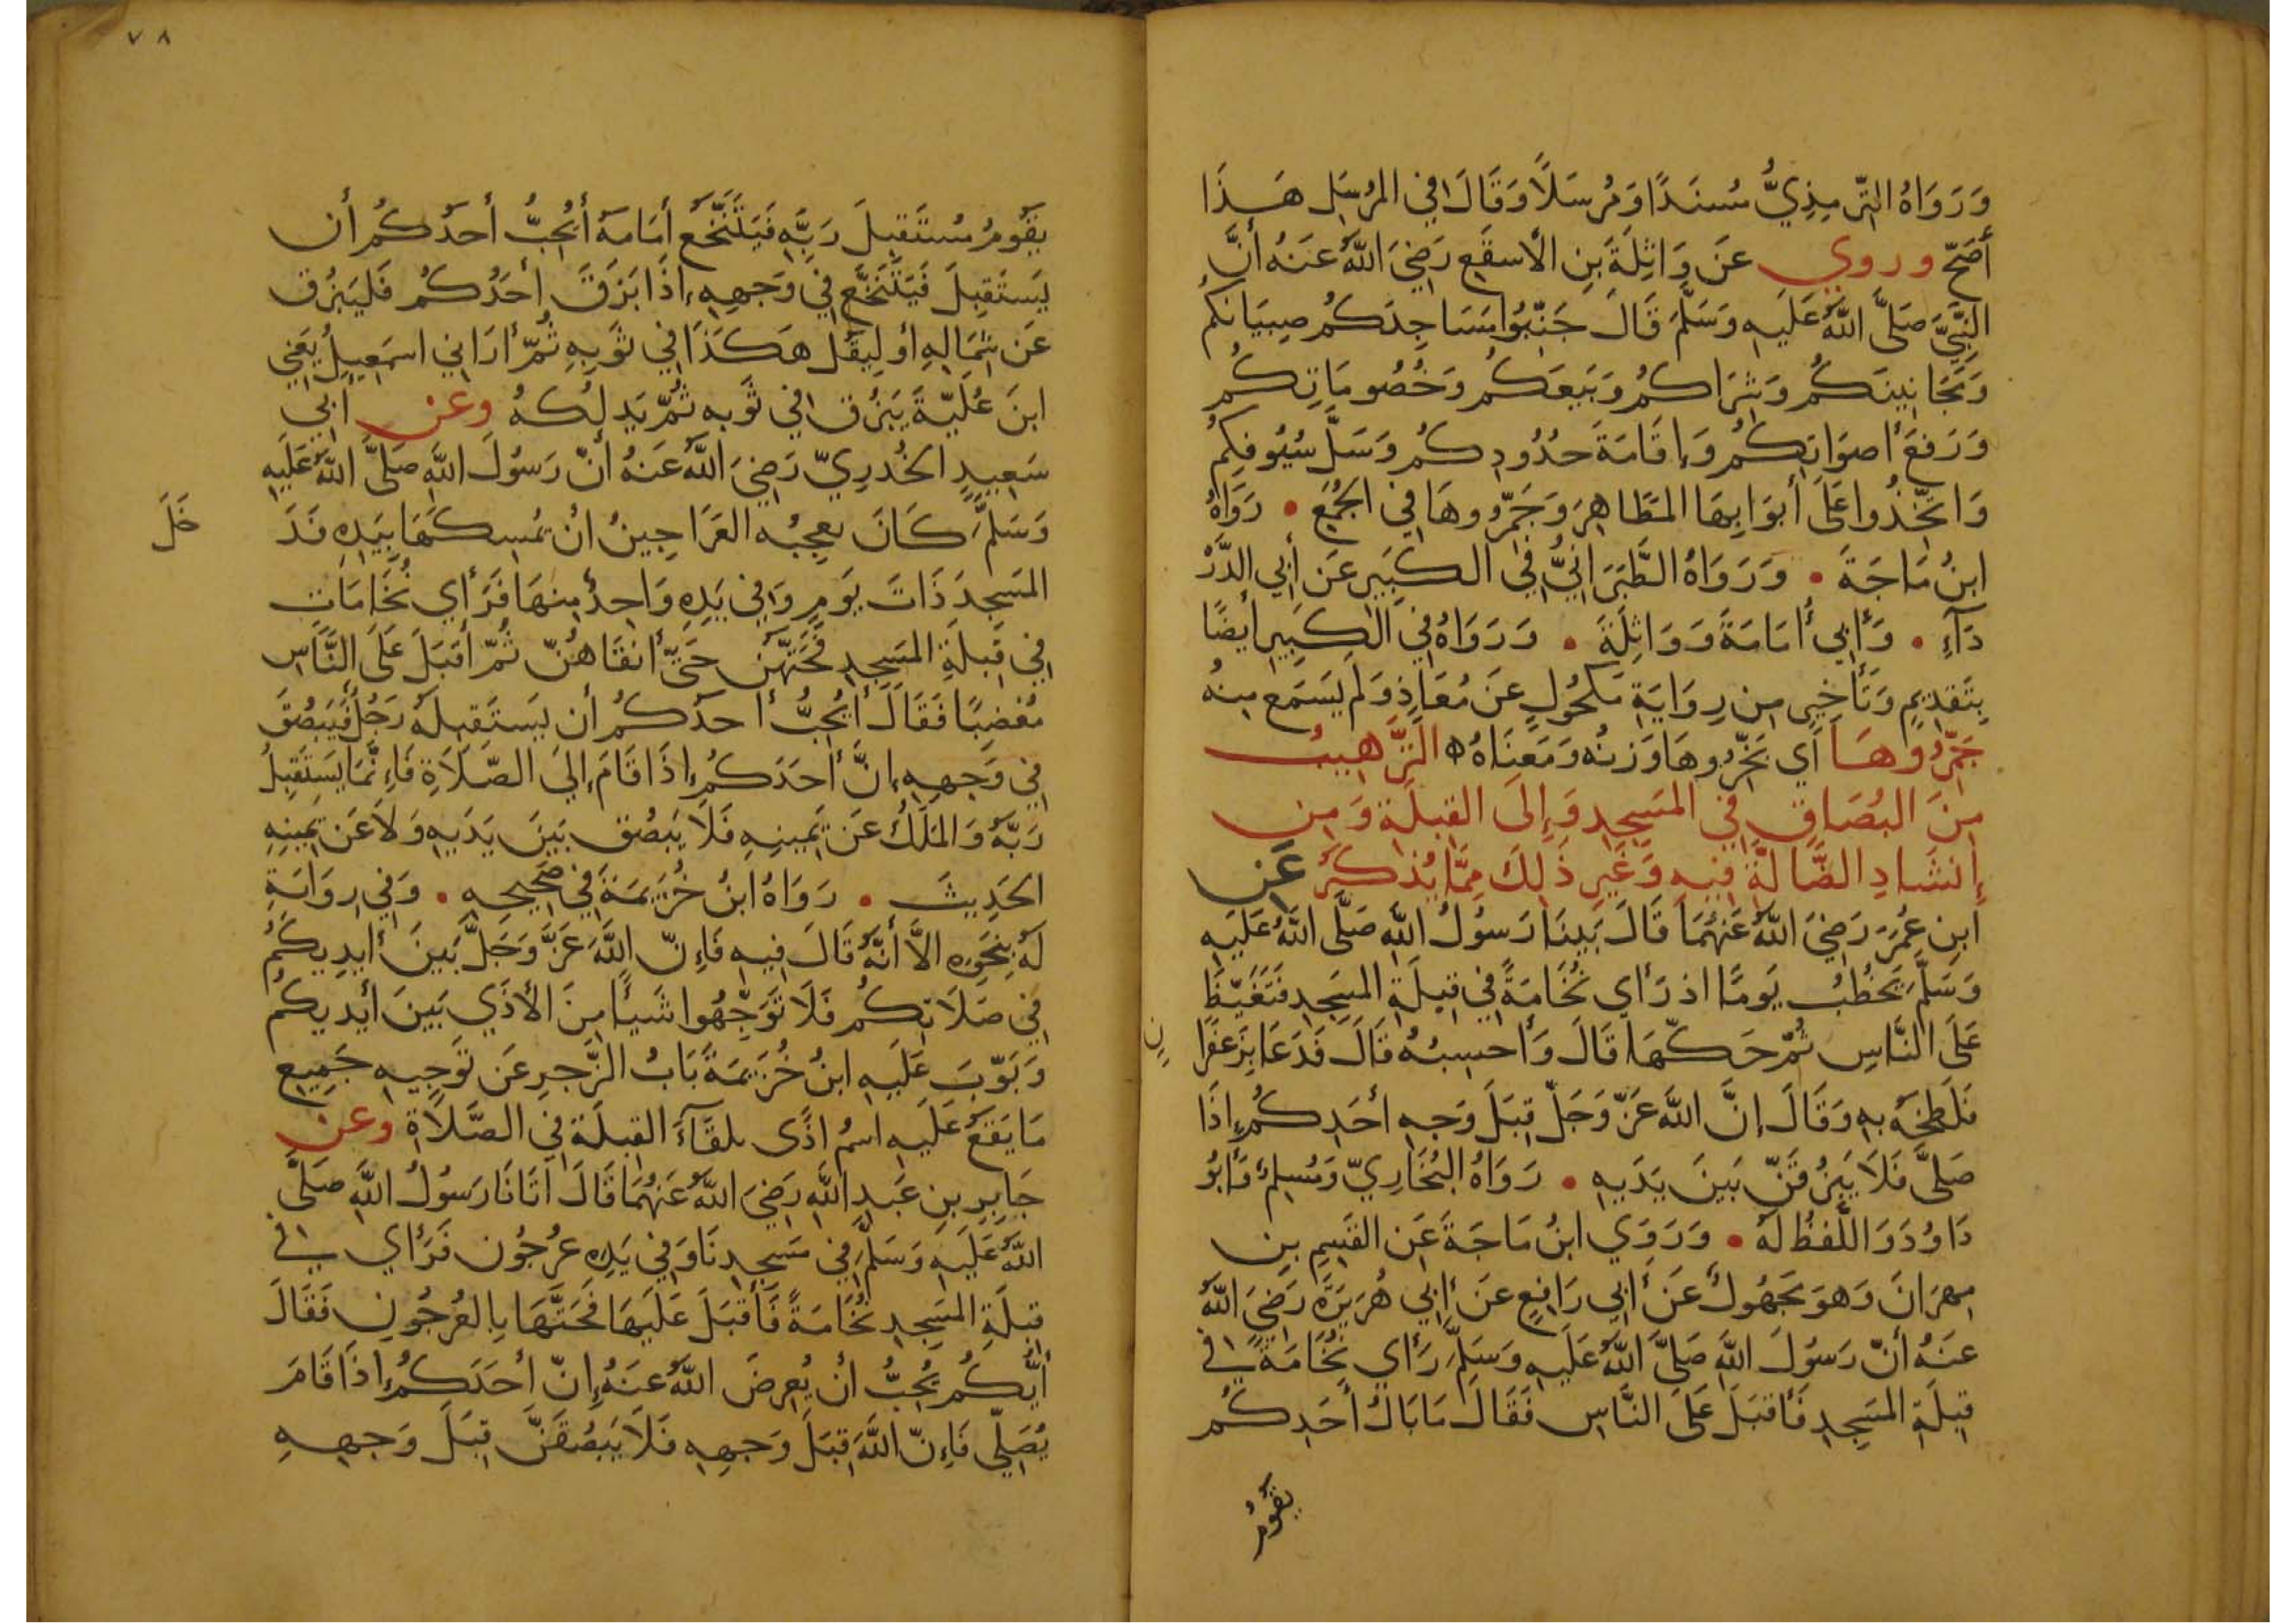 وَرَوَاهُ التِّرمِذِيُّ مُسنَدًا وَمُرسَلًا وَقَالَ فِي المُرسَلِ هَذَا
أصَحّ وروي عَن وَاثِلَةَ بنِ الأسقَعِ رَضِيَ اللَّهُ عَنهُ أنَّ
النَّبِيَّ صَلَّى اللَّهُ عَلَيهِ وَسَلَّمَ قَالَ جَنِّبُوا مَسَاجِدَكُم صِبيَانَكُم
وَمَجَانِينَكُم وَشِرَاكُم وَبَيعَكُم وَخُصُومَاتِكُم
وَرَفعَ أصوَاتِكُم وَإقَامَةَ حُدُودِكُم وَسَلَّ سُيُوفِكُم
وَاتَّخِذُوا عَلَى أبوَابِهَا المَطَاهِرَ وَجَمِّرُوهَا فِي الجُمَعِ • رَوَاهُ
ابنُ مَاجَةَ • وَرَوَاهُ الطَّبَرَانِيُّ فِي الكَبِيرِ عَن أبِي الدَّر
دَآءِ • وَأبِي أُمَامَةَ وَوَاثِلَةَ • وَرَوَاهُ فِي الكَبِيرِ أيضًا
بِتَقدِيمٍ وَتَأخِيرٍ مِن رِوَايَةِ مَكحُولٍ عَن مُعَاذٍ وَلَم يَسمَع مِنهُ
جَمِّرُوهَا أي بَخِّرُوهَا وَزنُه وَمَعنَاهُ ه التَّرهِيبُ
مِنَ البُصَاقِ فِي المَسجِدِ وَإلَى القِبلَةِ وَمِن
إنشَادِ الضَّالَّةِ فِيهِ وَغَيرِ ذَلِكَ مِمَّا يُذكَرُ عَن
ابنِ عُمَرَ رَضِيَ اللَّهُ عَنهُمَا قَالَ بَينَا رَسُولُ اللَّهِ صَلَّى اللَّهُ عَلَيهِ
وَسَلَّمَ يَخطُبُ يَومًا اذ رَأى نُخَامَةً فِي قِبلَةِ المَسجِدِ فَتَغَيَّظَ
عَلَى النَّاسِ ثُمَّ حَكَّهَا قَالَ وَأحسِبُهُ قَالَ فَدَعَا بِزَعفَرَا
نٍ
فَلَطَخَهُ بِهِ وَقَالَ إنَّ اللَّهَ عَزَّ وَجَلَّ قِبَلَ وَجهِ أحَدِكُم إذَا
صَلَّى فَلَا يَبزُقَنَّ بَينَ يَدَيهِ • رَوَاهُ البُخَارِيّ وَمُسلِم وَأبُو
دَاوُدَ وَاللَّفظُ لَهُ • وَرَوَى ابنُ مَاجَةَ عَنِ القَسِمِ بنِ
مِهرَانَ وَهوَ مَجهُولٌ عَن أبِي رَافِعٍ عَن أبِي هُرَيرَةَ رَضِيَ اللَّهُ
عَنهُ أنّ رَسُولَ اللَّهِ صَلَّى اللَّهُ عَلَيهِ وَسَلَّمَ رَأى نُخَامَةً فِي
قِبلَةِ المَسجِدِ فَأقبَلَ عَلَى النَّاسِ فَقَالَ مَا بَالُ أحَدِكُم
يَقُومُ
٧٨
يَقُومُ مُستَقبِلَ رَبِّهِ فَيَتَنَخَّعُ أمَامَهُ أيُحِبُّ أحَدُكُم أن
يُستَقبِلَ فَيُتَنَخَّعَ فِي وَجهِهِ إذَا بَزَقَ أحَدُكُم فَليَبزُق
عَن شِمَالِهِ أو لِيَقُل هَكَذَا فِي ثَوبِهِ ثُمَّ أرَانِي اسمَعِيلُ يَعنِي
ابنَ عُلَيَّةَ يَبزُق فِي ثَوبِهِ ثُمَّ يَدلُكُهُ وعن أبِي
سَعِيدٍ الخُدرِيّ رَضِيَ اللَّهُ عَنهُ أنّ رَسُولَ اللَّهِ صَلَّى اللَّهُ عَلَيهِ
وَسَلَّمَ كَانَ يُعجِبُه العَرَاجِينُ ان يُمسِكَهَا بِيَدِهِ فَدَ
خَلَ
المَسجِدَ ذَاتَ يَومٍ وَفِي يَدِهِ وَاحِدٌ مِنهَا فَرَأى نُخَامَاتٍ
فِي قِبلَةِ المَسجِدِ فَحَتَّهُنَّ حَتَّى أنقَاهُنّ ثُمّ أقبَلَ عَلَى النَّاسِ
مُغضِبًا فَقَالَ أيُحِبُّ أحَدُكُم أن يَستَقبِلَهُ رَجُلٌ فَيَبصُقَ
فِي وَجهِهِ انَّ أحَدَكُم إذَا قَامَ إلَى الصَّلَاةِ فَإنَّمَا يَستَقبِلُ
رَبَّهُ وَالمَلَكُ عَن يَمِينِهِ فَلَا يَبصُق بَينَ يَدَيهِ وَلَا عَن يَمِينِهِ
الحَدِيثَ • رَوَاهُ ابنُ خُزَيمَةَ فِي صَحِيحِهِ • وَفِي رِوَايَةٍ
لَهُ بِنَحوِهِ الَّا أنَّهُ قَالَ فِيهِ فَإنّ اللَّهَ عَزَّ وَجَلَّ بَينَ أيدِيكُم
فِي صَلَاتِكُم فَلَا تُوَجِّهُوا شَيئًا مِنَ الأذَى بَينَ أيدِيكُم
وَبَوَّبَ عَلَيهِ ابنُ خُزَيمَةَ بَابُ الزَّجرِ عَن تَوجِيهِ جَمِيعِ
مَا يَقَعُ عَلَيهِ اسمُ اذًى تِلقَآءَ القِبلَةِ فِي الصَّلَاةِ وعن
جَابِرِ بنِ عَبدِ اللَّهِ رَضِيَ اللَّهُ عَنهُمَا قَالَ اتَانَا رَسُولُ اللَّهِ صَلَّى
اللَّهُ عَلَيهِ وَسَلَّمَ فِي مَسجِدِنَا وَفِي يَدِهِ عُرجُون فَرَأى فِي
قِبلَةِ المَسجِدِ نُخَامَةً فَأقبَلَ عَلَيهَا فَحَتَّهَا بِالعُرجُونِ فَقَالَ
أيُّكُم يُحِبُّ أن يُعرِضَ اللَّهُ عَنهُ إنّ أحَدَكُم إذَا قَامَ
يُصَلِّي فَإنّ اللَّهَ قِبَلَ وَجهِهِ فَلَا يَبصُقَنَّ قِبَلَ وَجهِهِ